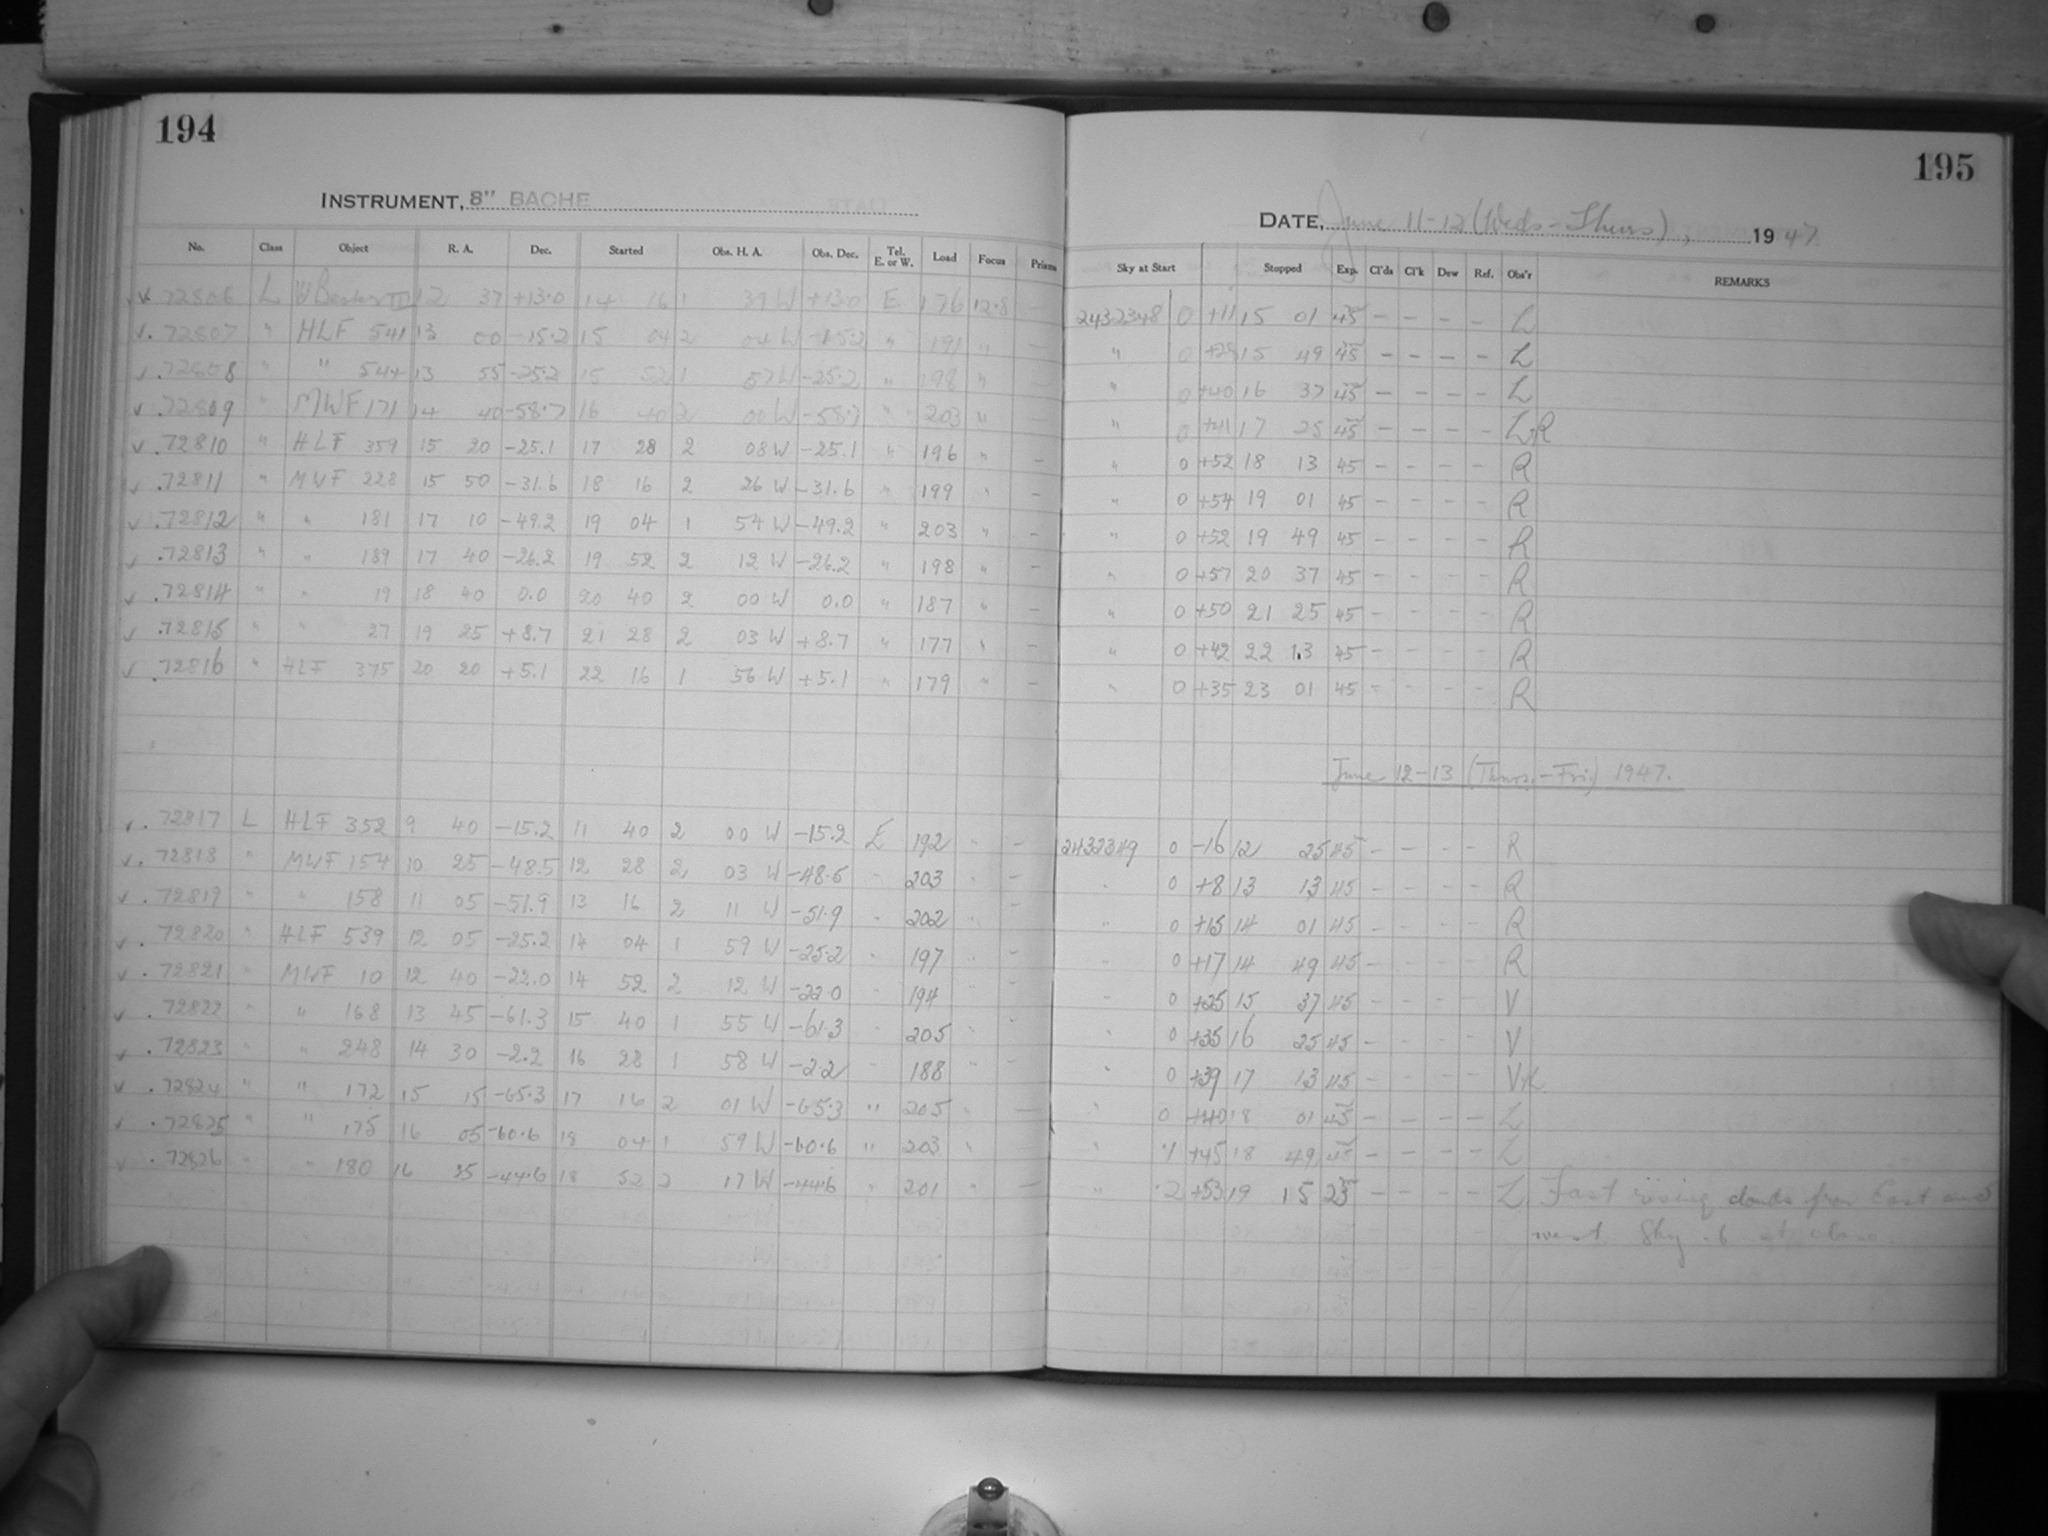 194
195
INSTRUMENT, 8" BACHE
DATE, June 11-12 (Weds-Thurs), 1947
No. Class Object R. A. Dec. Started Obs. H. A. Obs. Dec. Tel. E. or W. Load Focus Prism Sky at Start Stopped Exp. Cl'ds Cl'k Dew Ref. Obs'r REMARKS
v .72806 L 12 37 +13.0 14 16 1 39 W +13.0 E 176 12.8 2432348 0 +11 15 01 45 - - - - L
v .72807 " HLF 541 13 00 -15.2 15 04 2 04 W -15.2 " 191 " - " 0 +29 15 49 45 - - - - L
v .72808 " " 544 13 55 -25.2 15 52 1 57 W -25.2 " 198 " - " 0 +40 16 37 45 - - - - L
v .72809 " MWF 171 14 40 -58.7 16 40 2 00 W -58.7 " 203 " - " 0 +41 17 25 45 - - - - L+R
v .72810 " HLF 359 15 20 -25.1 17 28 2 08 W -25.1 " 196 " - " 0 +52 18 13 45 - - - - R
v .72811 " MWF 228 15 50 -31.6 18 16 2 26 W -31.6 " 199 " - " 0 +54 19 01 45 - - - - R
v .72812 " " 181 17 10 -49.2 19 04 1 54 W -49.2 " 203 " - " 0 +52 19 49 45 - - - - R
v .72813 " " 189 17 40 -26.2 19 52 2 12 W -26.2 " 198 " - " 0 +57 20 37 45 - - - - R
v .72814 " " 19 18 40 0.0 20 40 2 00 W 0.0 " 187 " - " 0 +50 21 25 45 - - - - R
v .72815 " " 27 19 25 +8.7 21 28 2 03 W +8.7 " 177 " - " 0 +42 22 13 45 - - - - R
v .72816 " HLF 375 20 20 +5.1 22 16 1 56 W +5.1 " 179 " - " 0 +35 23 01 45 - - - - R
June 12-13 (Thurs.-Fri) 1947.
v .72817 L HLF 352 9 40 -15.2 11 40 2 00 W -15.2 E 192 " - 2432349 0 -16 12 25 45 - - - - R
v .72818 " MWF 154 10 25 -48.5 12 28 2 03 W -48.5 " 203 " - " 0 +8 13 13 45 - - - - R
v .72819 " " 158 11 05 -51.9 13 16 2 11 W -51.9 " 202 " - " 0 +15 14 01 45 - - - - R
v .72820 " HLF 539 12 05 -25.2 14 04 1 59 W -25.2 " 197 " - " 0 +17 14 49 45 - - - - R
v .72821 " MWF 10 12 40 -22.0 14 52 2 12 W -22.0 " 194 " - " 0 +25 15 37 45 - - - - V
v .72822 " " 168 13 45 -61.3 15 40 1 55 W -61.3 " 205 " - " 0 +35 16 25 45 - - - - V
v .72823 " " 248 14 30 -2.2 16 28 1 58 W -2.2 " 188 " - " 0 +39 17 13 45 - - - -
v .72824 " " 172 15 15 -65.3 17 16 2 01 W -65.3 " 205 " - " 0 +40 18 01 45 - - - - L
v .72825 " " 175 16 05 -60.6 18 04 1 59 W -60.6 " 203 " - " .1 +45 18 49 45 - - - - L
v .72826 " " 180 16 35 -44.6 18 52 2 17 W -44.6 " 201 " - " .2 +53 19 15 23 - - - - L Fast rising clouds from East and
west Sky .6 at close.